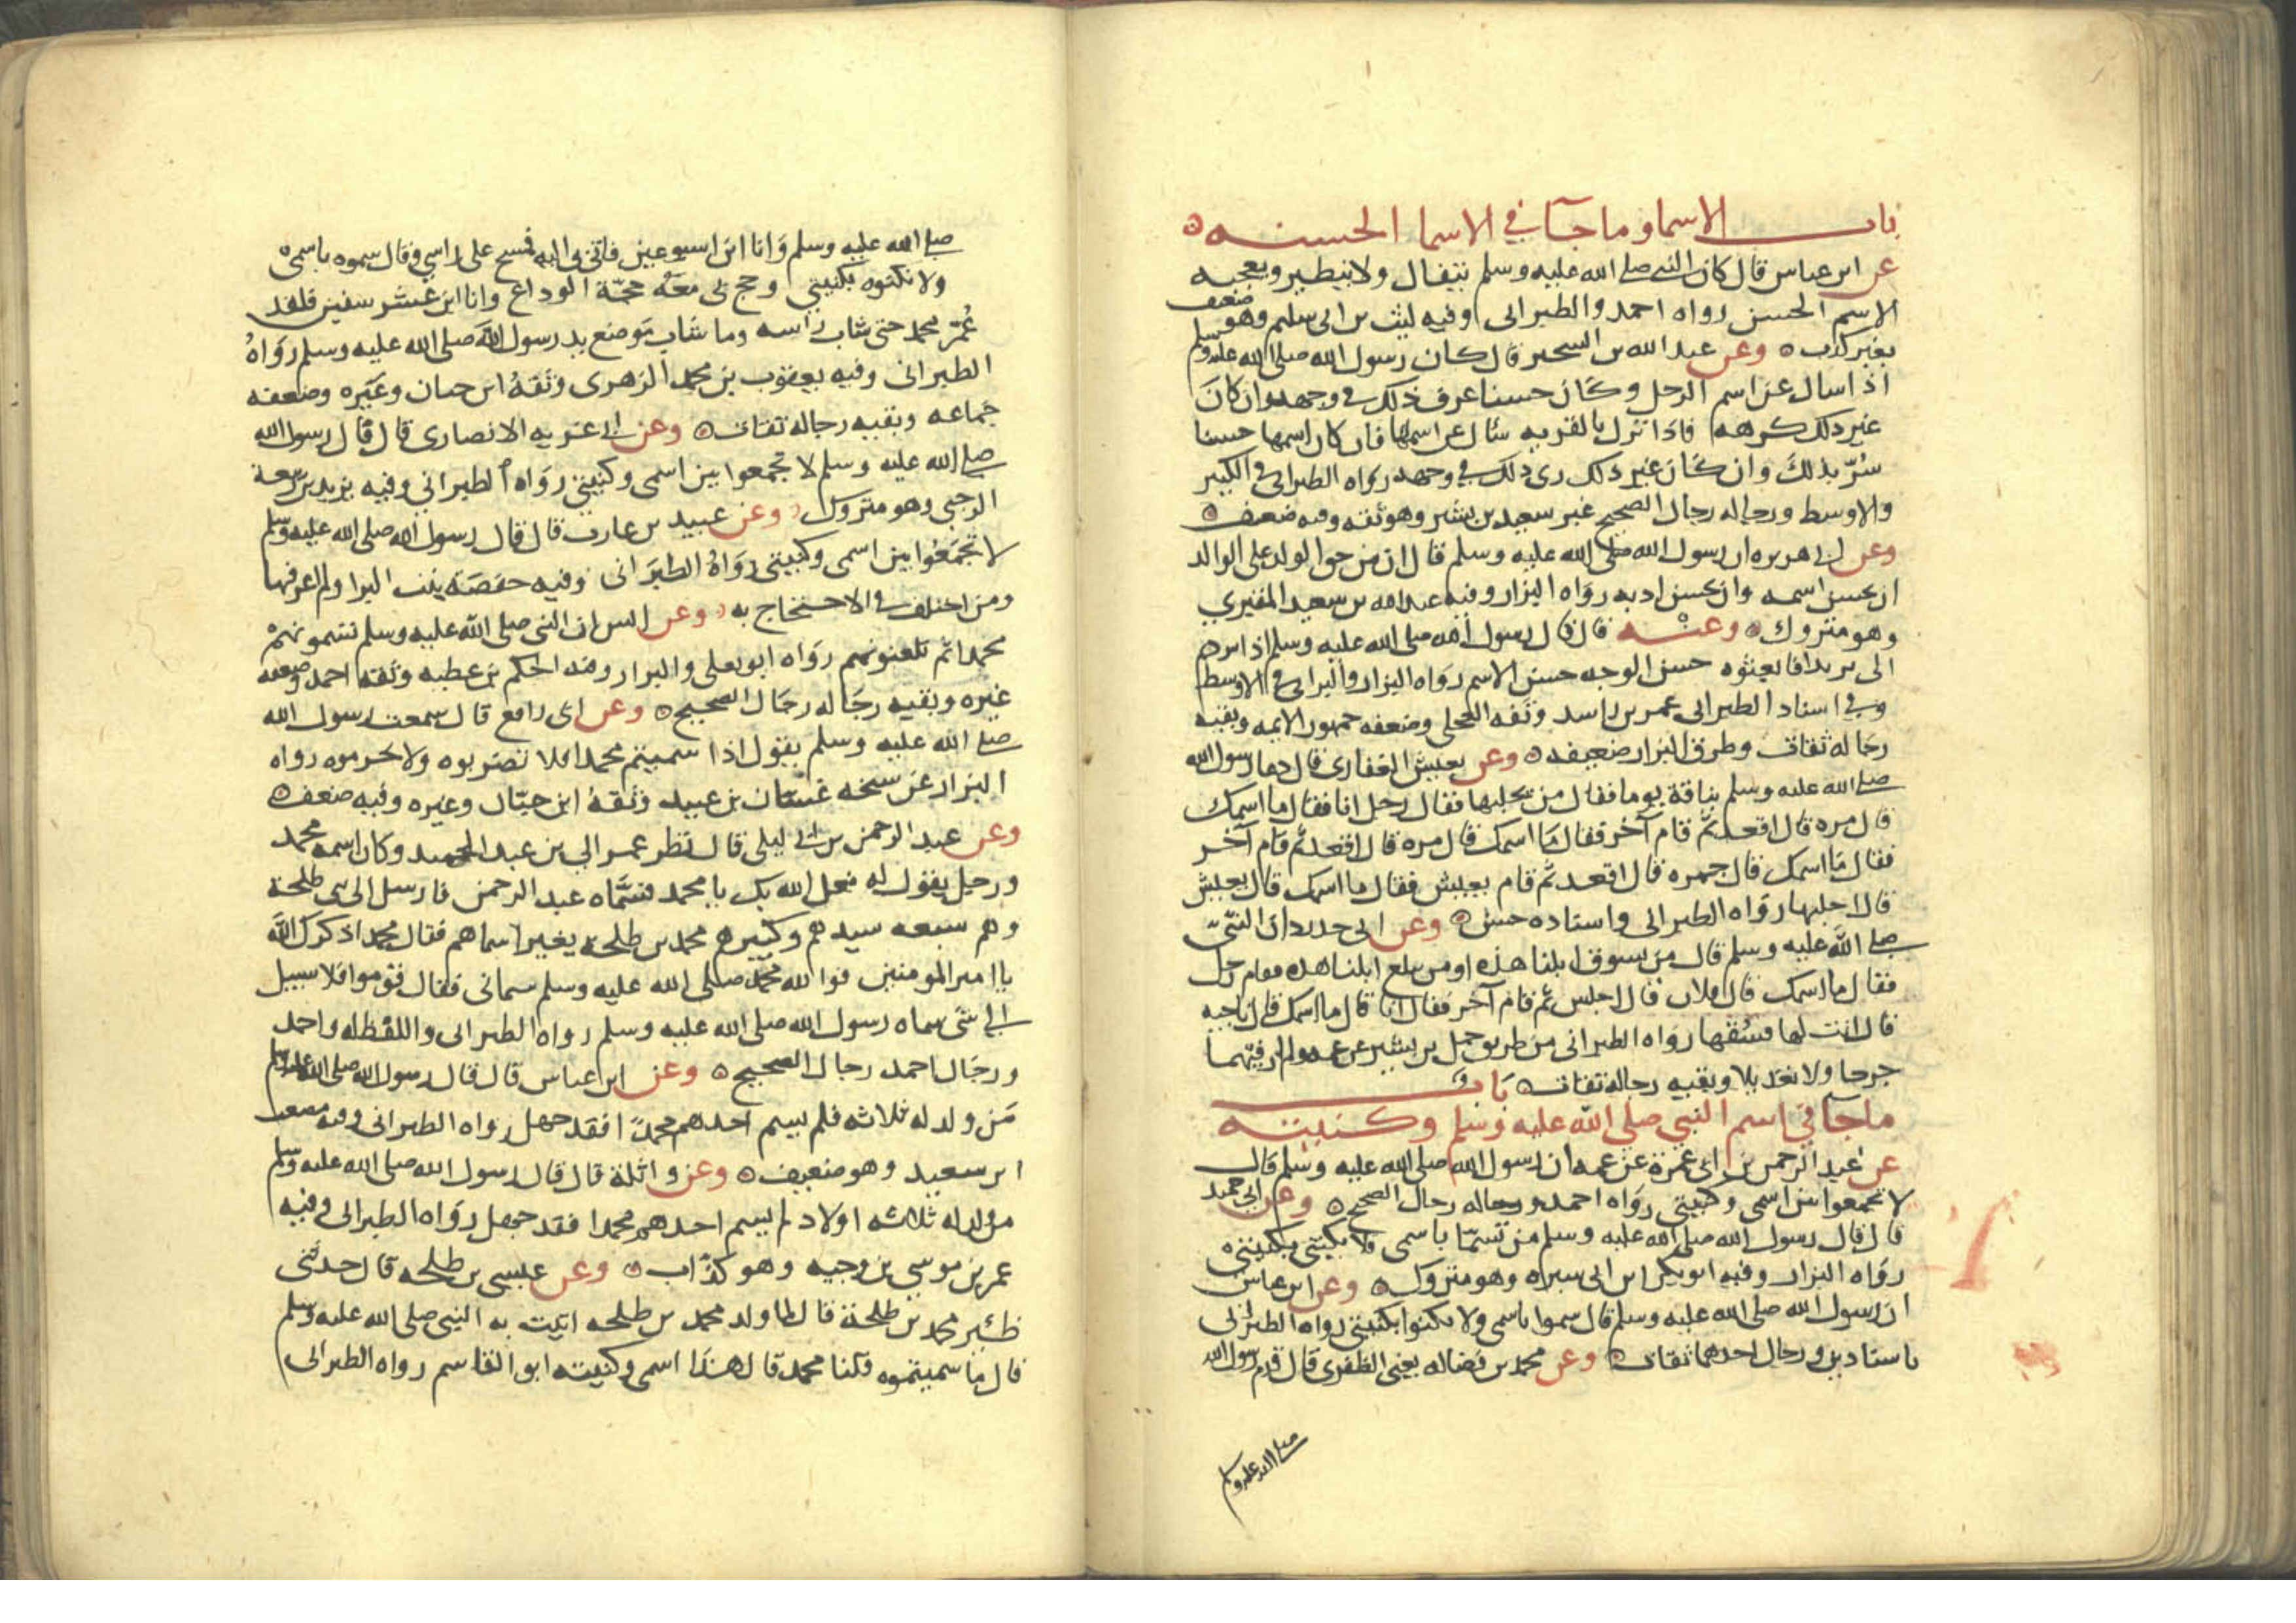 باب الاسما وما جآ في الاسما الحسنه
عن ابن عباس قال كان النبي صلى الله عليه وسلم يتفال ولا يتطير ويعجبه
الاسم الحسن رواه احمد والطبراني وفيه ليث بن ابي سليم وهو ضعيف
بغير كذب وعن عبد الله بن الشخير قال كان رسول الله صلى الله عليه وسلم
اذا سال عن اسم الرجل وكان حسنا عرف ذلك في وجهه وان كان
غير ذلك كرهه فاذا نزل بالقريه سال عن اسمها فان كان اسمها حسنا
سُرّ بذلك وان كان غير ذلك رى ذلك في وجهه رواه الطبراني في الكبير
والاوسط ورجاله رجال الصحيح غير سعيد بن بشير وهو ثقه وفيه ضعف
وعن ابي هريره ان رسول الله صلى الله عليه وسلم قال ان من حق الولد على الوالد
ان يحسن اسمه وان يحسن ادبه رواه البزار وفيه عبد الله بن سعيد المقبري
وهو متروك وعنه قال قال رسول الله صلى الله عليه وسلم اذا
الي بريدا فابعثوه حسن الوجه حسن الاسم رواه البزار في الاوسط
وفي اسناد الطبراني عمر بن راشد وثقه العجلي وضعفه جمهور الايمه وبقيه
رجاله ثقات وطرق البزار ضعيفه وعن يعيش الغفاري قال دعا رسول الله
صلى الله عليه وسلم بناقة يوما فقال من يحلبها فقال رجل انا فقال ما اسمك
قال مره قال اقعد ثم قام آخر فقال ما اسمك قال مره قال اقعد ثم قام آخر
فقال ما اسمك قال جمره قال اقعد ثم قام يعيش فقال ما اسمك قال يعيش
قال احلبها رواه الطبراني واسناده حسن وعن ابي حدرد ان النبي
صلى الله عليه وسلم قال من يسوق ابلنا هذه او من يبلع ابلنا هذه فقام رجل
فقال ما اسمك قال فلان قال اجلس ثم قام آخر فقال انا قال ما اسمك قال ناجيه
قال انت لها فسُقها رواه الطبراني من طريق حمل بن بشير عن عمه ولم ار فيهما
جرحا ولا تعديلا وبقيه رجاله ثقات باب
ماجآ في اسم النبي صلى الله عليه وسلم وكنيته
عن عبد الرحمن بن ابي عمرة عن عمه ان رسول الله صلى الله عليه وسلم قال
لا تجمعوا بين اسمي وكنيتي رواه احمد ورجاله رجال الصحيح وعن ابي حميد
قال قال رسول الله صلى الله عليه وسلم من تسمّا باسمي فلا يكتني بكنيتي
رواه البزار وفيه ابو بكر ابن ابي سبره وهو متروك وعن ابن عباس
ان رسول الله صلى الله عليه وسلم قال سموا باسمي ولا تكنوا بكنيتي رواه الطبراني
باسنادين ورجال احدهما ثقات وعن محمد بن فضاله يعني الظفري قال قدم رسول الله
صلى الله عليه وسلم
صلى الله عليه وسلم وانا ابن اسبوعين فاتي بي اليه فمسح على راسي وقال سموه باسمي
ولا تكنوه بكنيتي وحج بي معه حجّة الوداع وانا ابن عشر سنين فلقد
عُمّر محمد حتى شاب راسه وما شاب موضع يد رسول الله صلى الله عليه وسلم رواهُ
الطبراني وفيه يعقوب بن محمد الزهري وثقهُ ابن حبان وغيره وضعفه
جماعه وبقيه رجاله ثقات وعن ابي الانصاري قال قال رسول الله
صلى الله عليه وسلم لا تجمعوا بين اسمي وكنيتي رواه الطبراني وفيه يزيد بن ربيعة
الرحبي وهو متروك وعن عبيد بن عازب قال قال رسول الله صلى الله عليه وسلم
لا تجمعُوا بين اسمي وكنيتي رواهُ الطبراني وفيه حفصة بنت البرا ولم اعرفها
ومن اختلف في الاحتجاج به وعن انس ان النبي صلى الله عليه وسلم تسمونهمْ
محمدا ثم تلعنونهم رواه ابو يعلى والبزار وفيه الحكم بن عطيه وثقه احمد وضعفه
غيره وبقيه رجاله رجال الصحيح وعن ابي رافع قال سمعت رسول الله
صلى الله عليه وسلم يقول اذا سميتم محمدا فلا تضربوه ولا تحرموه رواه
البزار عن شيخه غسّان بن عبيد وثقهُ ابن حبّان وغيره وفيه ضعف
وعن عبد الرحمن بن ابي ليلى قال نظر عمر الي بن عبد الحميد وكان اسمه محمد
ورجل يقول له فعل الله بك يا محمد فسمّاه عبد الرحمن فارسل الى بني طلحة
وهم سبعه سيدهم وكبيرهم محمد بن طلحه يغير اسماهم فقال محمد اذكرك الله
يا امير المومنين فوالله محمد صلى الله عليه وسلم سماني فقال قوموا فلا سبيل
الي شي سماه رسول الله صلى الله عليه وسلم رواه الطبراني واللفظ له واحمد
ورجال احمد رجال الصحيح وعن ابن عباس قال قال رسول الله صلى الله عليه وسلم
من ولد له ثلاثه فلم يسم احدهم محمدًا فقد جهل رواه الطبراني وفيه مصعب
ابن سعيد وهو ضعيف وعن واثلة قال قال رسول الله صلى الله عليه وسلم
من ولد له ثلاثه اولاد لم يسم احدهم محمدا فقد جهل رواه الطبراني وفيه
عمر بن موسى بن وجيه وهو كذّاب وعن عيسى بن طلحه قال حدثتني
ظئير محمد بن طلحة قال لما ولد محمد بن طلحه اتيت به النبي صلى الله عليه وسلم
قال ما سميتموه قلنا محمد قال هذا اسمي وكنيته ابو القاسم رواه الطبراني